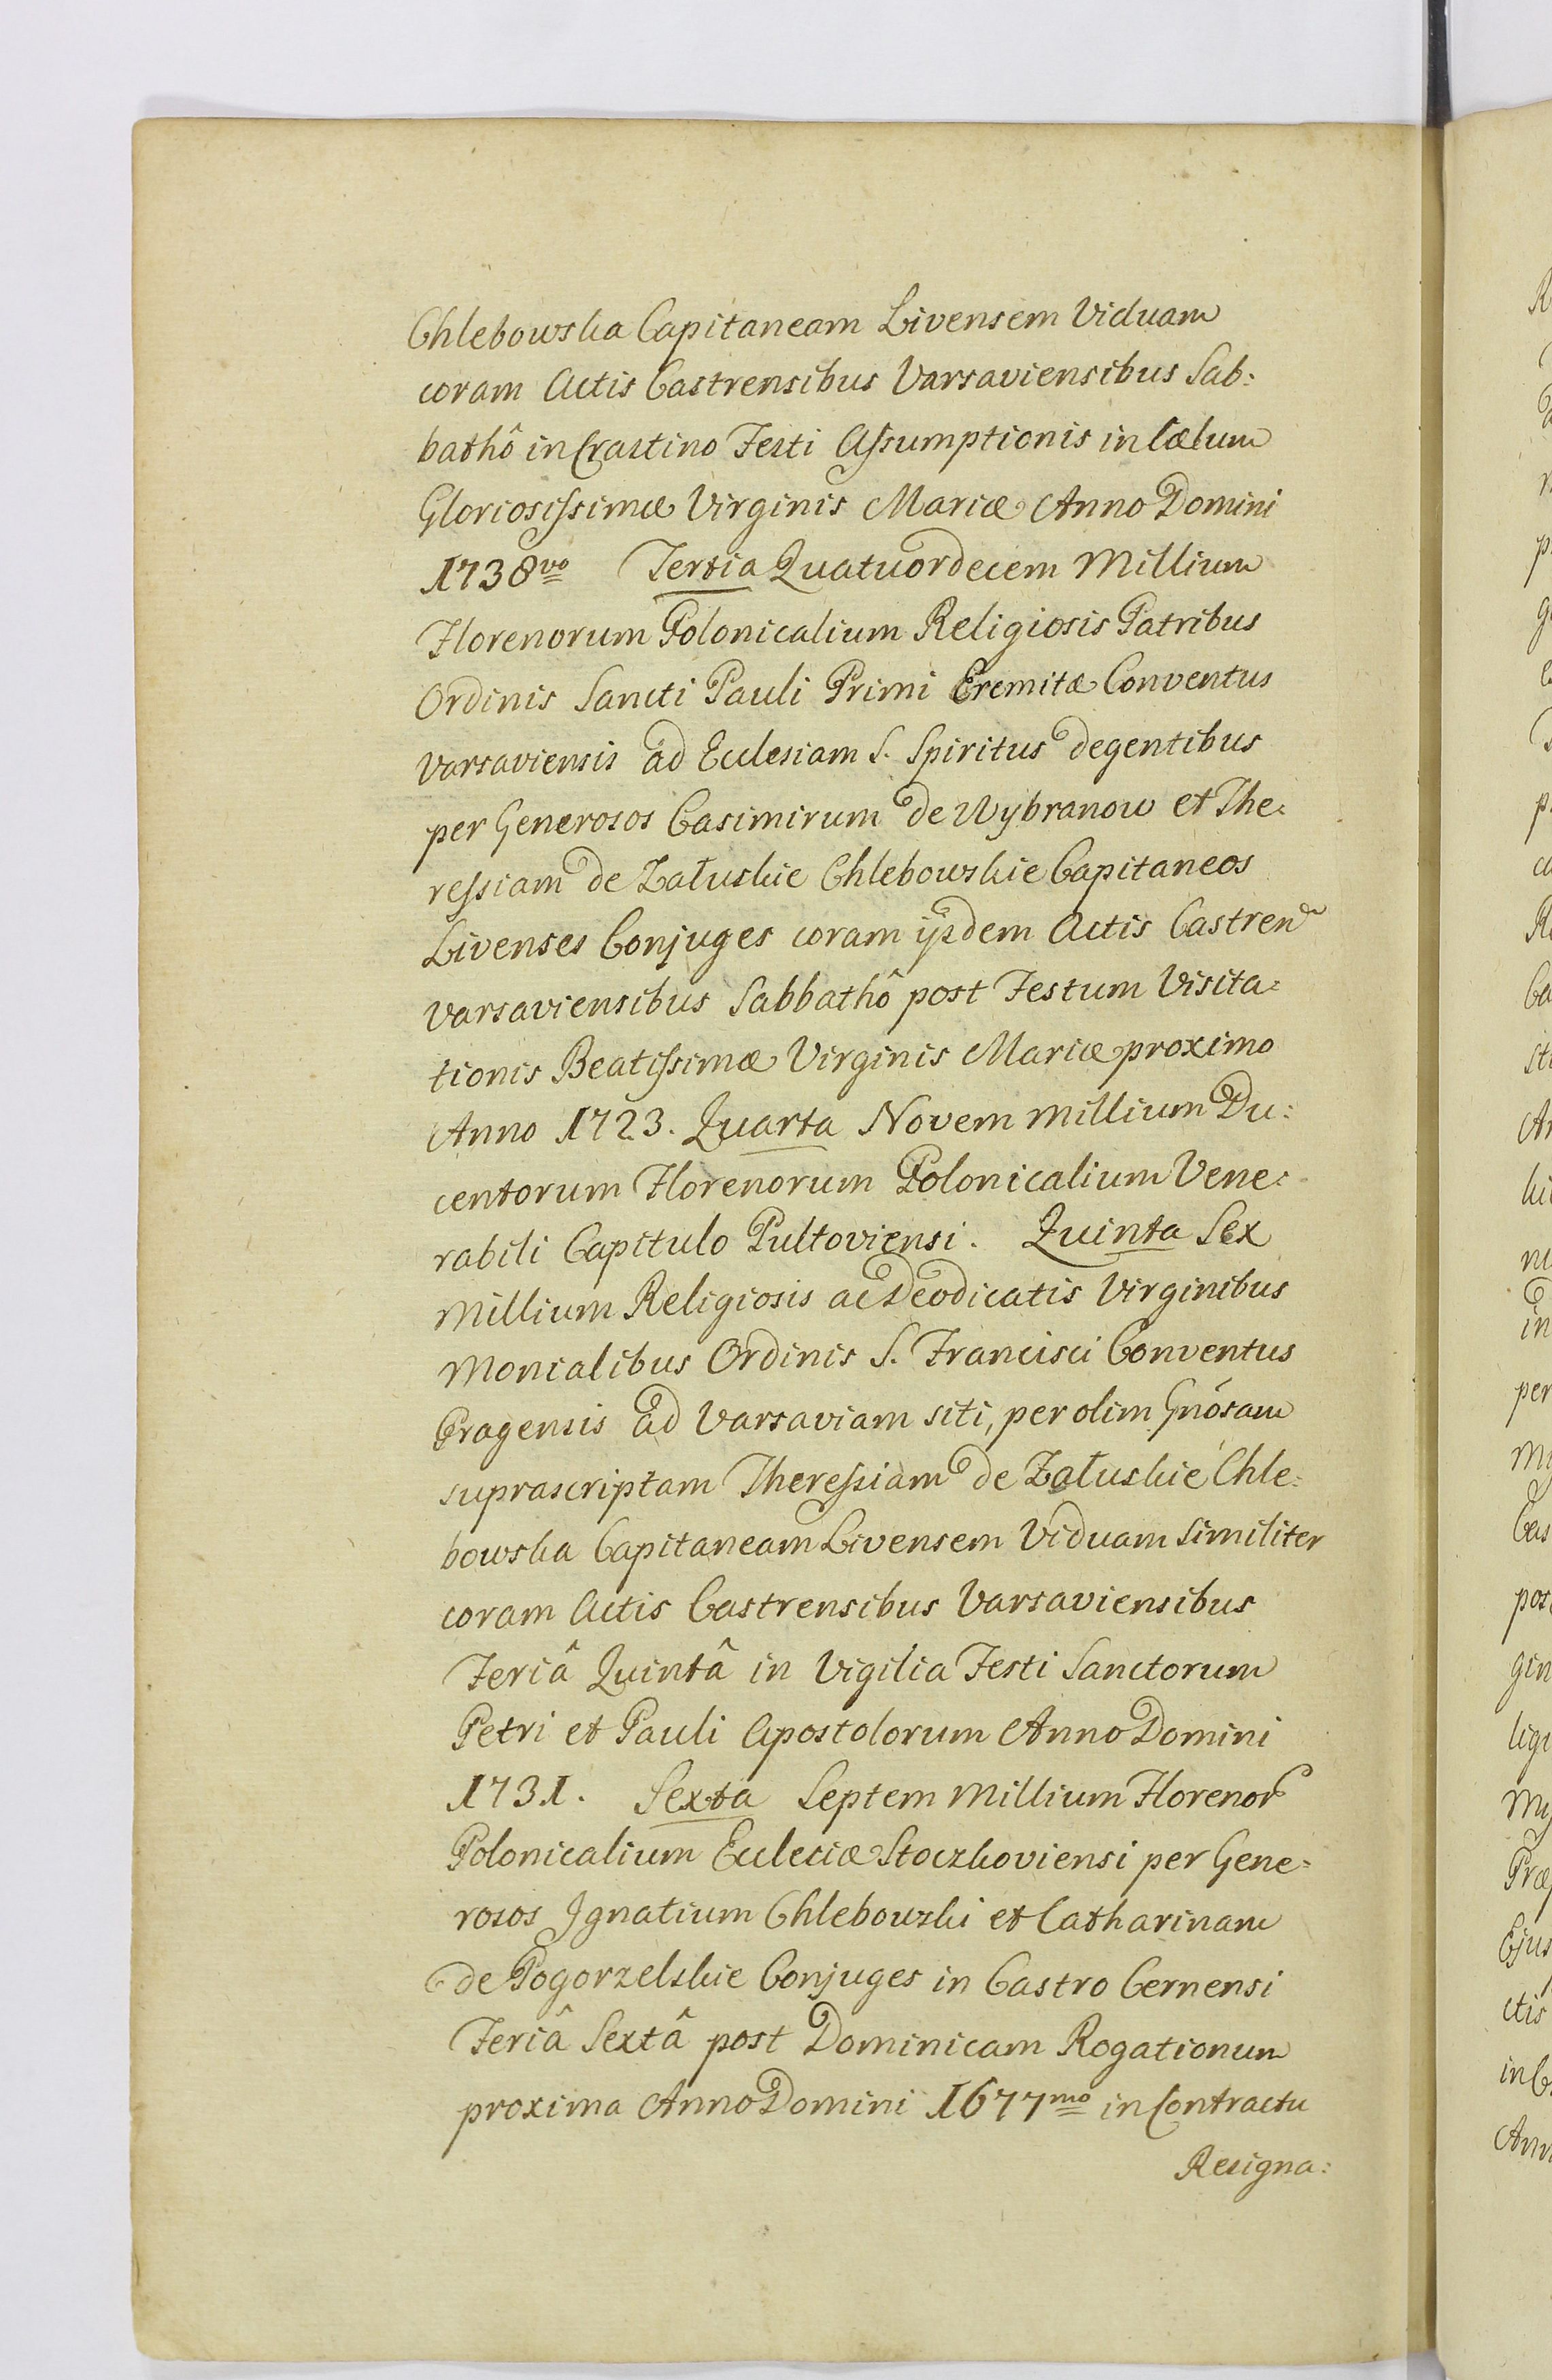 Chlebowska Capitaneam Livensem Viduam
coram Actis Castrensibus Varsaviensibus Sab:
bathô in Crastino Festi Assumptionis in Cælum
Gloriosissimæ Virginis Mariæ Anno Domini
1738vo Tertia Quatuordecem Millium
Florenorum Polonicalium Religiosis Patribus
Ordinis Sancti Pauli Primi Eremitæ Conventus
Varsaviensis ad Ecclesiam S. Spiritus degentibus
per Generosos Casimirum de Wybranow et The:
ressiam de Załuskie Chlebowskie Capitaneos
Livenses Conjuges coram ijsdem Actis Castren
Varsaviensibus Sabbathô post Festum Visita:
tionis Beatissimæ Virginis Mariæ proximo
Anno 1723. Quarta Novem millium Du:
centorum Florenorum Polonicalium Vene:
rabili Capitulo Pultoviensi. Quinta Sex
Millium Religiosis ac Deodicatis Virginibus
Monialibus Ordinis S. Francisci Conventus
Pragensis ad Varsaviam siti, per olim Gnósam
suprascriptam Theressiam de Załuskie Chle:
bowska Capitaneam Livensem Viduam similiter
coram Actis Castrensibus Varsaviensibus
Feriâ Quintâ in Vigilia Festi Sanctorum
Petri et Pauli Apostolorum Anno Domini
1731. Sexta Septem Millium Florenor
Polonicalium Eccleciæ Stoczkoviensi per Gene:
rosos Ignatium Chlebowski et Catharinam
de Pogorzelskie Conjuges in Castro Cernensi
Feriâ Sextâ post Dominicam Rogationum
proxima Anno Domini 1677mo in Contractu
Resigna: